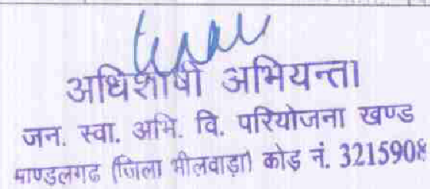 अधिशाषी अभियन्ता
जन. स्वा. अभि. वि. परियोजना खण्ड
माण्डलगढ (जिला भीलवाड़ा) कोड़ नं. 3215908